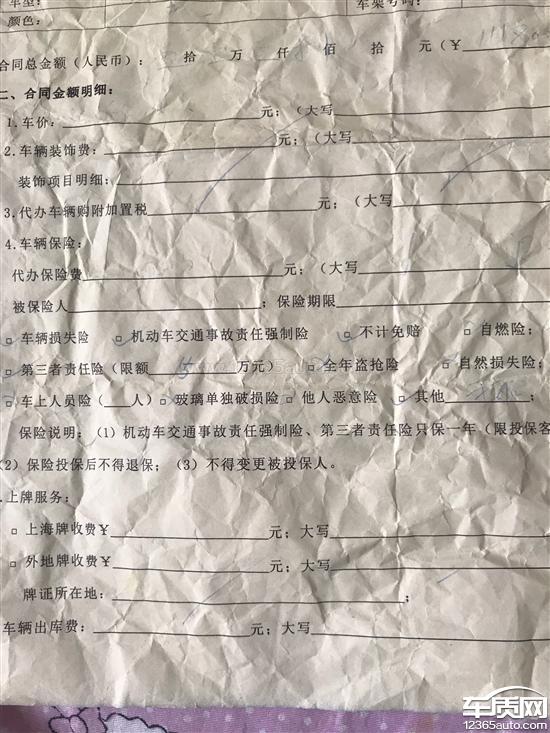 车型： 车架号码：
颜色：
合同总金额（人民币）： 拾 万 仟 佰 拾 元（¥
二、合同金额明细：
1.车价： 元；（大写
2.车辆装饰费： 元；（大写
装饰项目明细：
3.代办车辆购附加置税 元；（大写
4.车辆保险：
代办保险费 元；（大写
被保险人 ；保险期限
□ 车辆损失险 □ 机动车交通事故责任强制险 □ 不计免赔 □ 自燃险；
□ 第三者责任险（限额 万元） □ 全年盗抢险 □ 自然损失险；
□ 车上人员险（ 人）□ 玻璃单独破损险 □ 他人恶意险 □ 其他 ；
保险说明：（1）机动车交通事故责任强制险、第三者责任险只保一年（限投保客
（2）保险投保后不得退保；（3）不得变更被投保人。
.上牌服务：
□ 上海牌收费¥ 元；大写
□ 外地牌收费¥ 元；大写
牌证所在地： ；
车辆出库费： 元；大写
车质网
12365auto.com